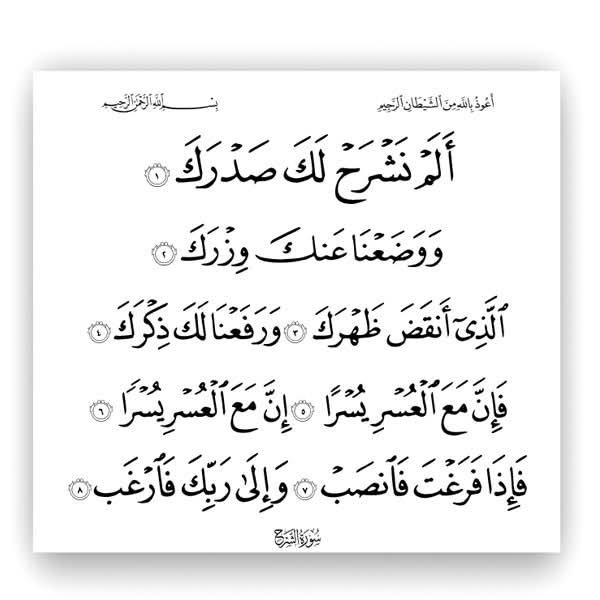 أَعُوذُ بِاللَّهِ مِنَ الشَّيْطَانِ الرَّجِيمِ بِسْمِ اللَّهِ الرَّحْمَٰنِ الرَّحِيمِ
أَلَمْ نَشْرَحْ لَكَ صَدْرَكَ ١
وَوَضَعْنَا عَنكَ وِزْرَكَ ٢
ٱلَّذِىٓ أَنقَضَ ظَهْرَكَ ٣ وَرَفَعْنَا لَكَ ذِكْرَكَ ٤
فَإِنَّ مَعَ ٱلْعُسْرِ يُسْرًا ٥ إِنَّ مَعَ ٱلْعُسْرِ يُسْرًا ٦
فَإِذَا فَرَغْتَ فَٱنصَبْ ٧ وَإِلَىٰ رَبِّكَ فَٱرْغَب ٨
سُورَةُ الشَّرْحِ